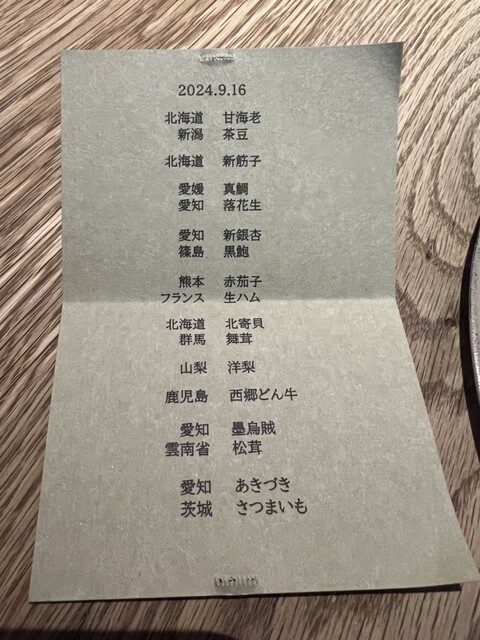 2024.9.16
北海道 甘海老
新潟 茶豆
北海道 新筋子
愛媛 真鯛
愛知 落花生
愛知 新銀杏
篠島 黒鮑
熊本 赤茄子
フランス 生ハム
北海道 北寄貝
群馬 舞茸
山梨 洋梨
鹿児島 西郷どん牛
愛知 墨烏賊
雲南省 松茸
愛知 あきづき
茨城 さつまいも